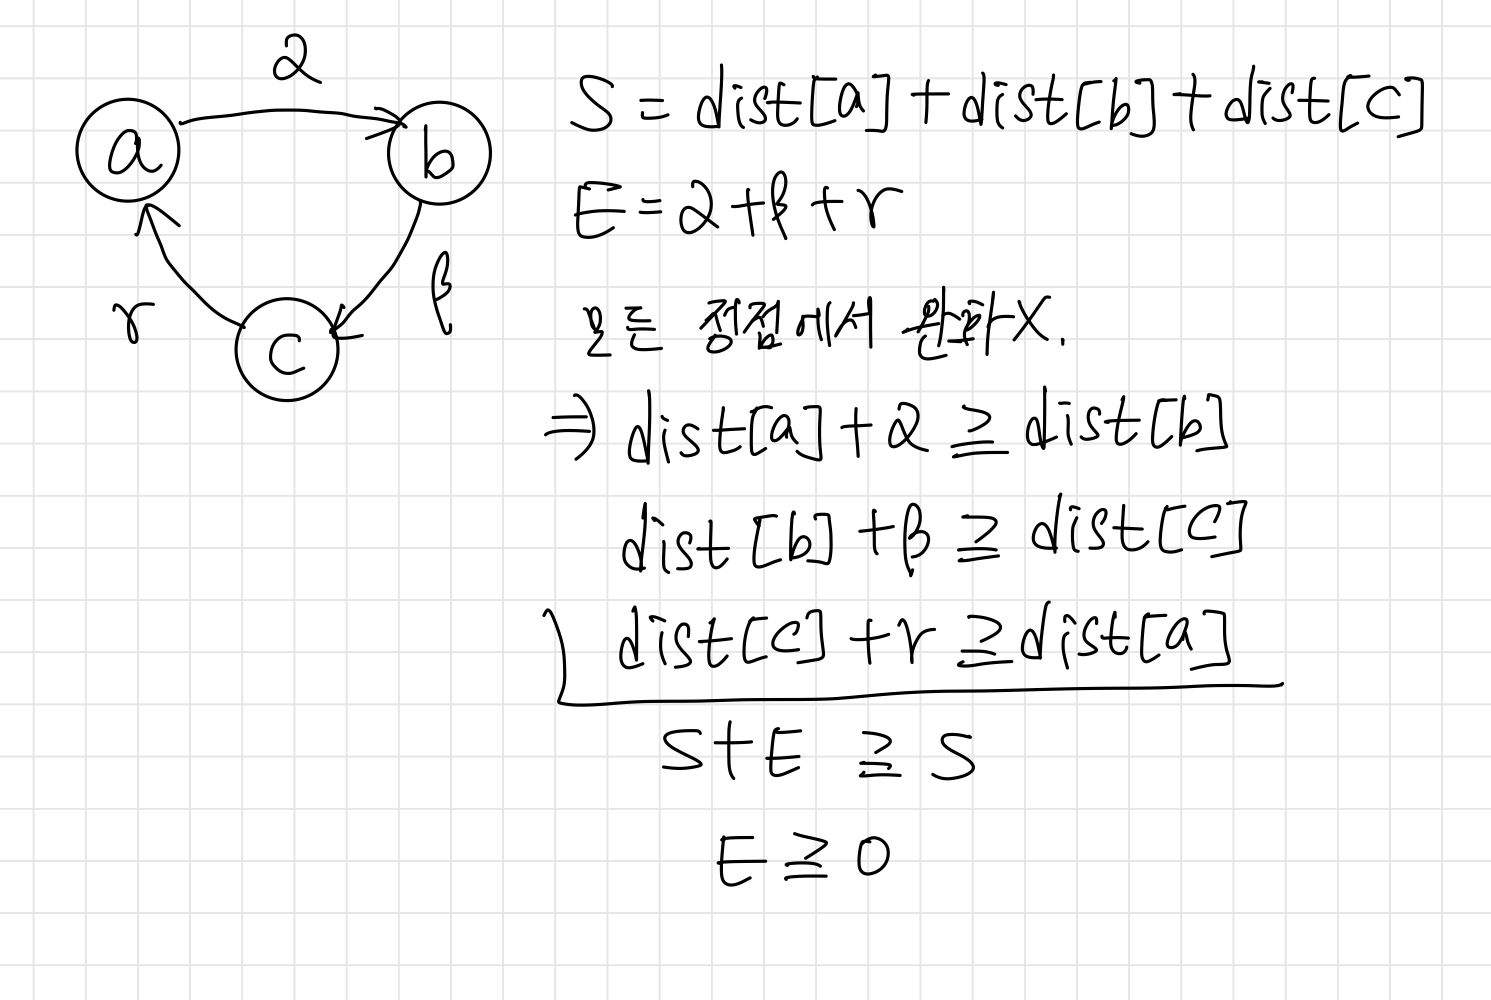 α
a
b
β
γ
c
S = dist[a] + dist[b] + dist[c]
E = α + β + γ
모든 정점에서 완화 X.
⇒ dist[a] + α ≧ dist[b]
dist[b] + β ≧ dist[c]
dist[c] + γ ≧ dist[a]
S + E ≧ S
E ≧ 0